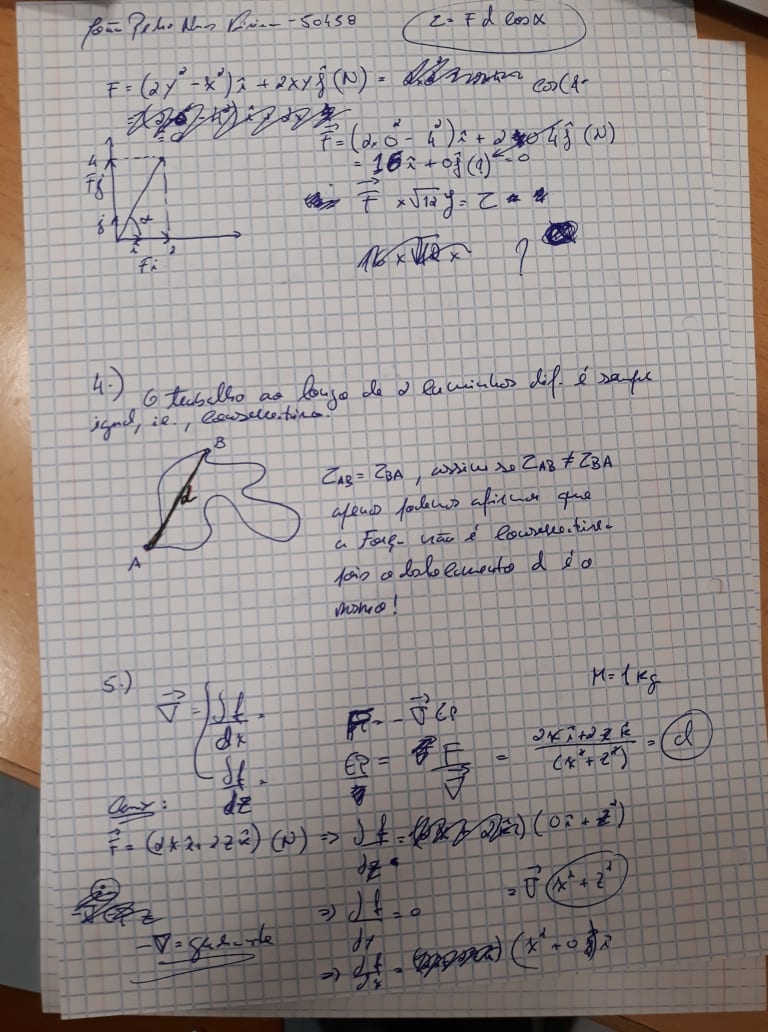 João Pedro - 50458
τ = F d cos α
F = (2y² - x²) î + 2xy ĵ (N) =
cos(
F⃗ = (2.0² - 4²) î + 2 × 0 × 4 ĵ (N)
= 16 î + 0 ĵ (1) = 0
F⃗ × √12 = τ
16 × √12 ×
?
4
Fj
j
α
i
2
Fi
4.) O trabalho ao longo de 2 caminhos dif. é sempre
igual, i.e., conservativa.
B
d
A
τAB = τBA, assim se τAB ≠ τBA
apenas podemos afirmar que
a Força não é conservativa
pois o deslocamento d é o
mesmo!
5.)
M = 1 kg
∇⃗ = { df/dx
df/dz
F = - ∇⃗ EP
EP = F/∇⃗ = (2x î + 2z k̂)/(x² + z²) = d
F⃗ = (2x î + 2z k̂) (N) => df/dz = (0 î + z²)
= ∇⃗ (x² + z²)
=> df/dy = 0
-∇ =
=> df/dx = (x² + 0